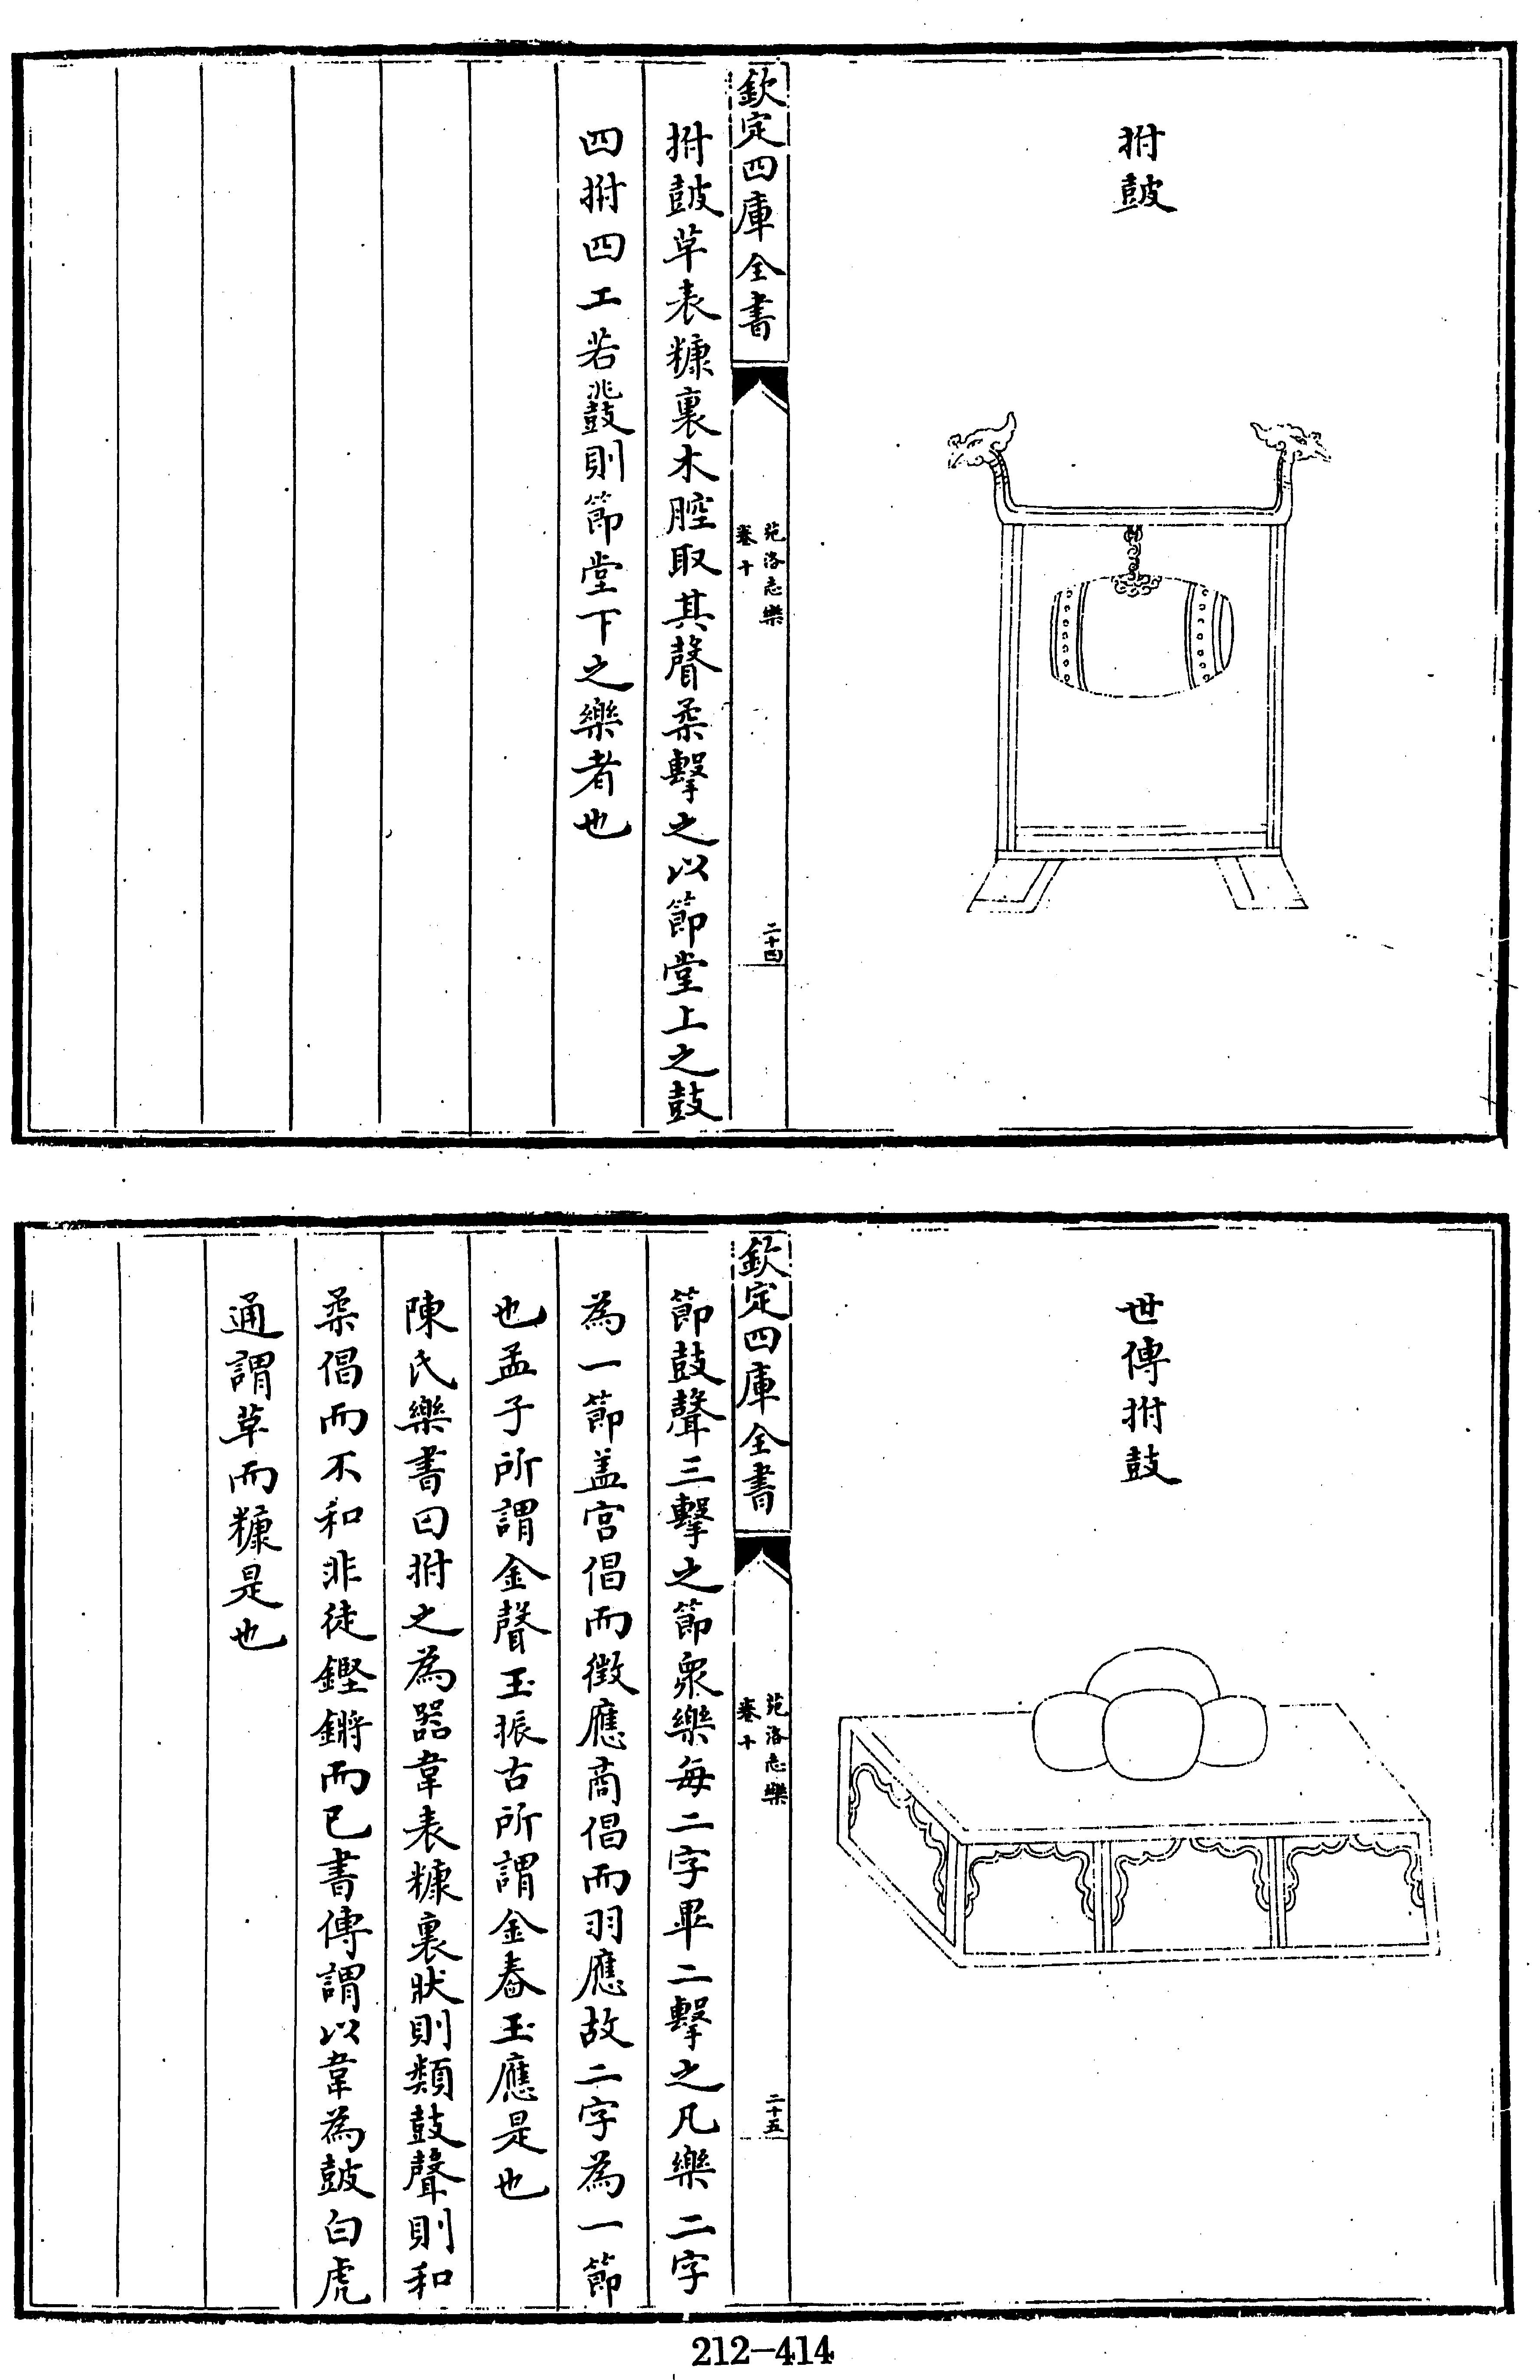 拊皷
欽定四庫全書
苑洛志樂
卷十
二十四
拊皷革表糠裏木腔取其聲柔擊之以節堂上之鼓
四拊四工若鼗則節堂下之樂者也
世傳拊鼓
欽定四庫全書
苑洛志樂
卷十
二十五
節鼓聲三擊之節衆樂每二字畢二擊之凡樂二字
為一節盖宫倡而徴應商倡而羽應故二字為一節
也孟子所謂金聲玉振古所謂金舂玉應是也
陳氏樂書曰拊之為器韋表糠裏狀則類鼓聲則和
柔倡而不和非徒鏗鏘而已書傳謂以韋為皷白虎
通謂革而糠是也
212-414